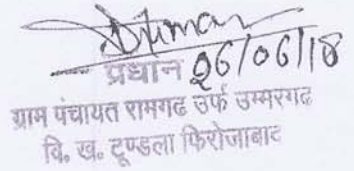 प्रधान 26/06/18
ग्राम पंचायत रामगढ उर्फ उम्मरगढ
वि. ख. टूण्डला फिरोजाबाद